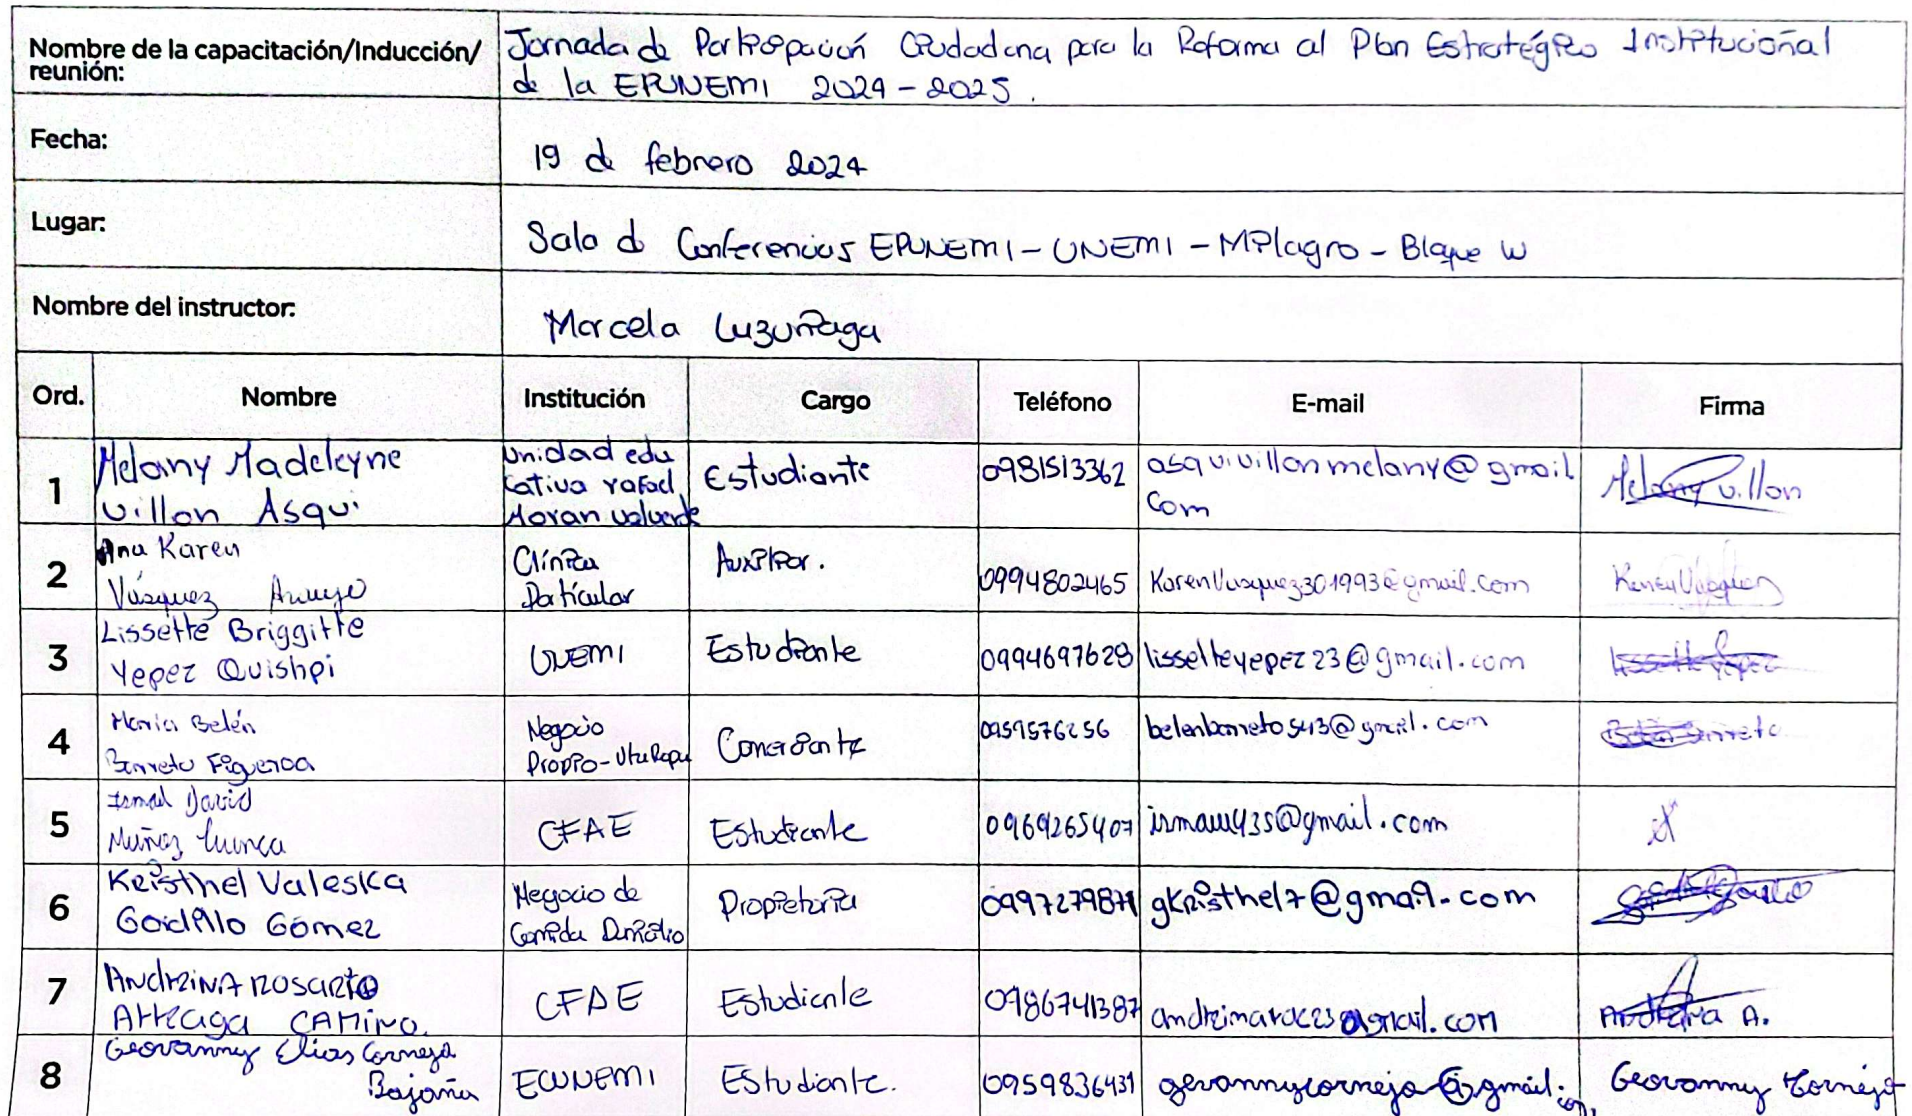 Nombre de la capacitación/Inducción/
reunión:
Jornada de Participación Ciudadana para la Reforma al Plan Estratégico Institucional
de la EPUNEMI 2024-2025.
Fecha:
19 de febrero 2024
Lugar:
Sala de Conferencias EPUNEMI-UNEMI-Milagro-Bloque W
Nombre del instructor:
Marcela Luzuriaga
Ord. Nombre Institución Cargo Teléfono E-mail Firma
1 Melany Madeleyne
Villon Asqui
Unidad edu
cativa rafael
Moran valverde
Estudiante
0981513362
asquivillonmelany@gmail
com
Melany Villon
2 Ana Karen
Vásquez
Clínica
Particular
Auxiliar.
0994802465
KarenVasquez301993@gmail.com
3 Lissette Briggitte
Yepez Quishpi
UNEMI
Estudiante
0994697628
lissetteyepez23@gmail.com
Lissette Yepez
4 Maria Belén
Barreto Figueroa
Negocio
Propio-
Comerciante
belenbarreto543@gmail.com
Belén Barreto
5 Ismael David
Muñoz
CFAE
Estudiante
0969265407
6 Kristhel Valeska
Gordillo Gómez
Negocio de
Comida Domicilio
Propietaria
0997279871
gkristhel7@gmail.com
7 Andreina Rosario
Arteaga Camino.
CFAE
Estudiante
0986741387
Andreina A.
8 Geovanny Elias Cornejo
Bajaña
ECUNEMI
Estudiante.
0959836431
geovannycornejo@gmail.
com.
Geovanny Cornejo